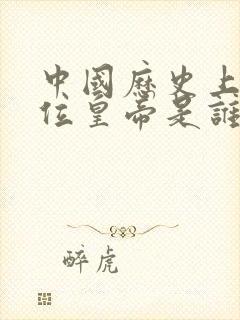 中國歷史上
位皇帝是誰
醉虎